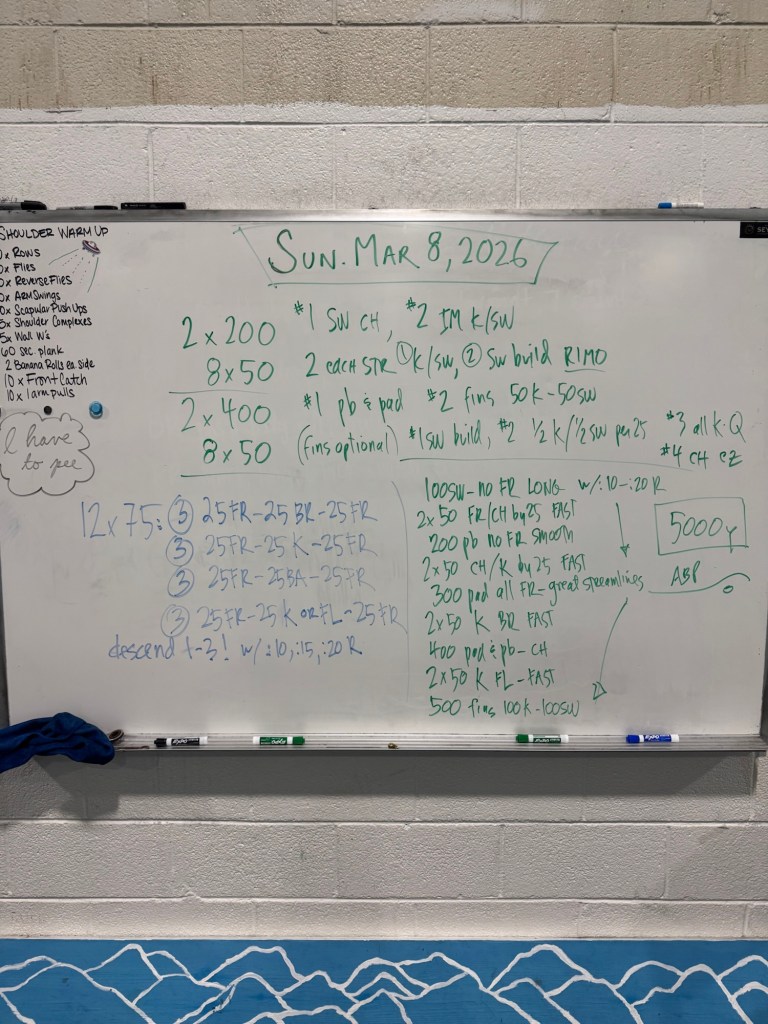 SUN. MAR 8, 2026
SHOULDER WARM UP
x Rows
x Flies
x Reverse Flies
x ARM Swings
x Scapular Push Ups
x Shoulder Complexes
x Wall W's
60 sec. plank
2 Banana Rolls ea. side
10 x Front Catch
10 x 1 arm pulls
I have
to pee
2 x 200 #1 SW CH, #2 IM K/SW
8 x 50 2 each STR ① K/SW, ② SW build RIMO
2 x 400 #1 pb & pad #2 fins 50K-50SW
8 x 50 (fins optional) #1 SW build, #2 ½ K/½ SW per 25 #3 all K-Q
#4 CH EZ
12 x 75: ③ 25FR-25BR-25FR
③ 25FR-25K-25FR
③ 25FR-25BA-25FR
③ 25FR-25K OR FL-25FR
descend 1-3! w/:10,:15,:20 R
100SW-no FR LONG w/:10-:20 R
2x50 FR/CH by 25 FAST
200 pb no FR smooth
2x50 CH/K by 25 FAST
300 pad all FR-great streamlines
2x50 K BR FAST
400 pad & pb-CH
2x50 K FL-FAST
500 fins 100K-100SW
5000y
ABP